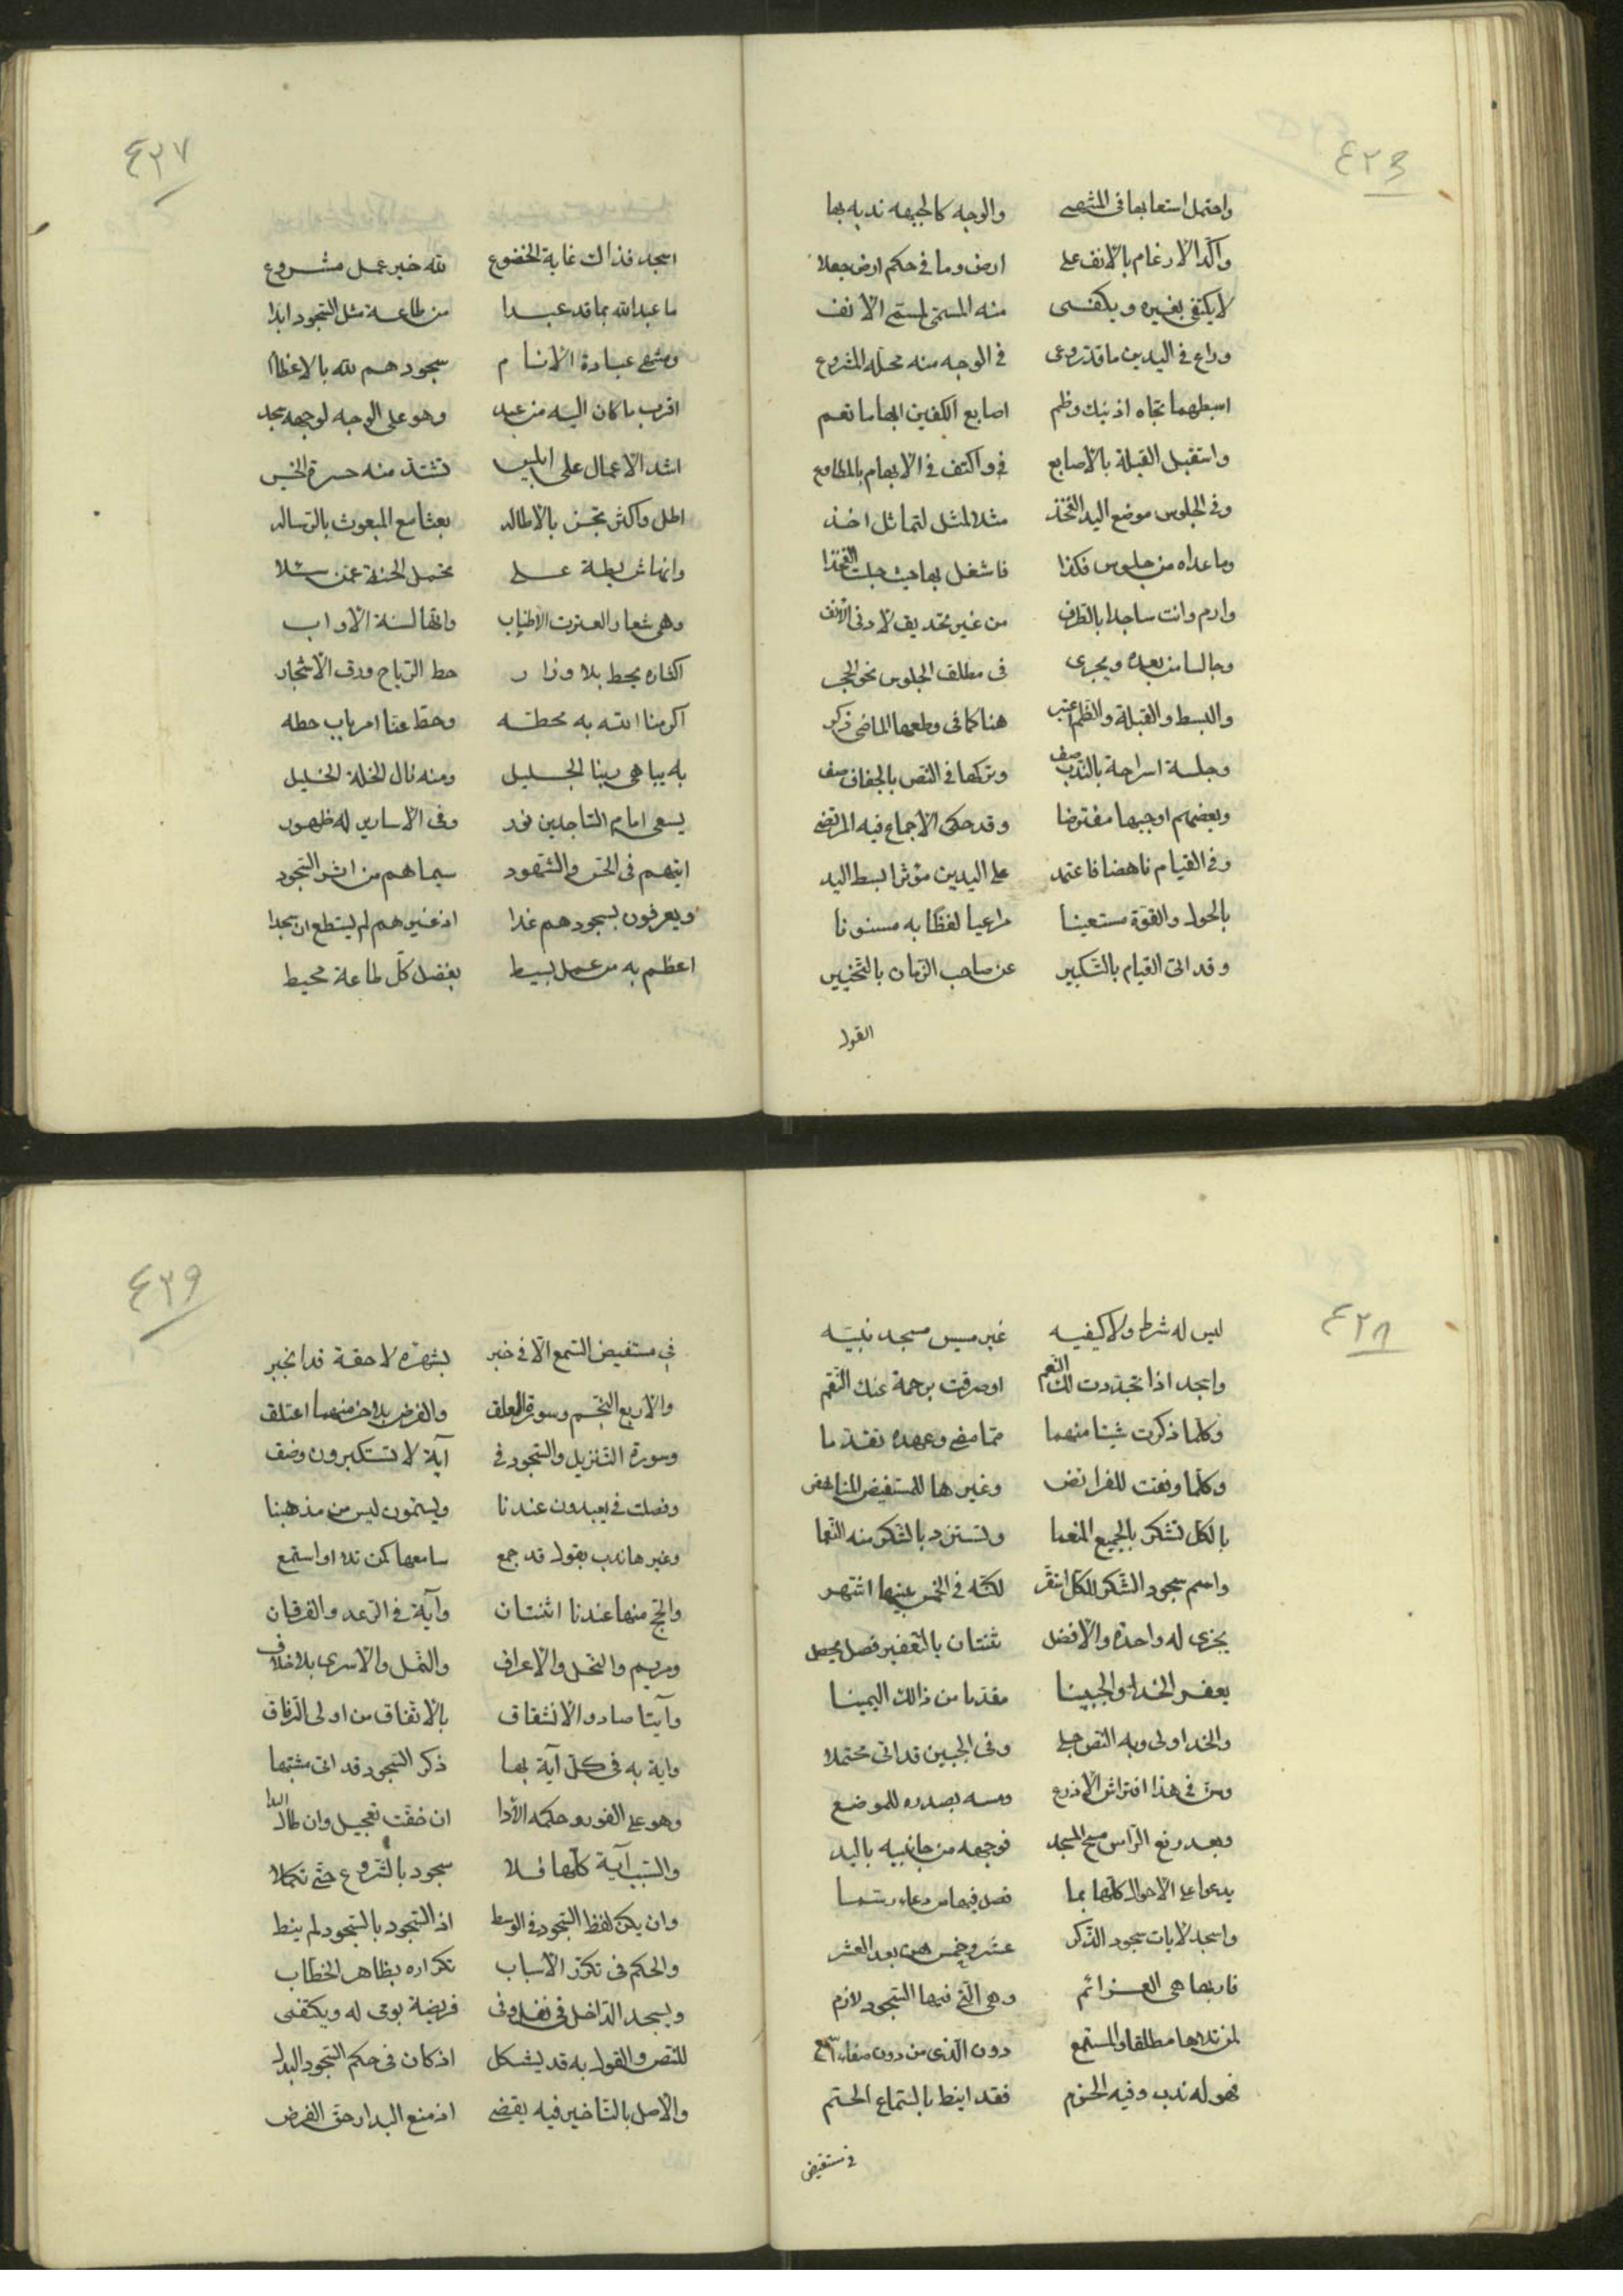 ٤٢٦
واحتمل استعابها في المشهي والوجه كالجبهه ندبه بها
واكد الارغام بالانف على ارض وما في حكم ارض جعلا
لا يكتفي بغيره ويكتفى منه المسمى لمستمى الانف
وراع في اليدين ما قد روعي في الوجه منه محله المشروع
ابسطهما تجاه اذنيك وظم اصابع الكفين ابهاما تعم
واستقبل القبلة بالاصابع في واكتف في الابهام بالمطاوع
وفي الجلوس موضع اليد الفخذ مثلا لمثل لتماثل اخذ
وما عداه من جلوس فكذا فاشغل بها حيث جلت الفخذا
وارم وانت ساجدا بالطرف من غير تحديق لادنى الانف
وجالسا من بعده ويجرى في مطلق الجلوس نحو الحجر
والبسط والقبلة والظم اعتبر هنا كما في وضعها الماضي ذكر
وجلسة استراحة بالندب صف وتركها في النص بالجفاف صف
وبعضهم اوجبها مفترضا وقد حكى الاجماع فيه المرتضى
وفي القيام ناهضا فاعتمد على اليدين مؤثرا بسط اليد
بالحول والقوة مستعينا مراعيا لفظا به مسنونا
وقد اتى القيام بالتكبير عن صاحب الزمان بالتخيير
القول
٤٢٧
اسجد فذاك غاية الخضوع لله خير عمل مشروع
ما عبد الله بما قد عبدا من طاعة مثل السجود ابدا
ومنتهى عبادة الانام سجودهم لله بالاعظام
اقرب ما كان اليه من عبد وهو على الوجه لوجهه سجد
اشد الاعمال على ابليس تشتد منه حسرة الخسيس
اطل واكثر تحسن بالاطاله بعثا مع المبعوث بالرساله
وانها شريطة على تحمل الجنة عمن سئلا
وهي شعار العترت الاطياب وانها لسنة الاواب
اكثاره يحط بلا وزار حط الرياح ورق الاشجار
اكرمنا الله به محطته وحط عنا امر باب حطه
به يباهي ربنا الجليل ومنه نال الخلة الخليل
يسعى امام الساجدين نور وفي الاسارير له ظهور
ايتهم في الحس والشهود سيماهم من اثر السجود
ويعرفون بسجودهم غدا اذ غيرهم لم يستطع ان يسجدا
اعظم به من عمل بسيط بفضل كل طاعة محيط
٤٢٨
ليس له شرط ولا كيفيه غير مسيس مسجد نبيته
واسجد اذا تجددت لك النعم او صرفت برحمة عنك النقم
وكلما ذكرت شيئا منهما مما مضى وعهده تقدما
وكلما وفقت للفرائض وغيرها للمستفيض الناهض
بالكل تشكر بالجميع المنعما وتستزد بالشكر منه النعما
واسم سجود الشكر للكل استقر لكنه في الخمس عينها اشتهر
يجزي له واحدة والافضل ثنتان بالتعفير فصل يحصل
يعفر الخدا والجبينا مقدما من ذالك اليمينا
والخد اولى وبه النص جلي وفي الجبين قد اتى محتملا
وسن في هذا افتراش الاذرع ومسه بصدره للموضع
وبعد رفع الراس مسح المسجد فوجهه من جانبيه باليد
يدعو على الاحوال كلها بما فصل فيها من دعاء رسما
واسجد لايات سجود الذكر عشر وخمس هن بعد العشر
فاربعا هي العزائم وهي التي فيها السجود لازم
لمن تلاها مطلقا والمستمع دون الذي من دون صغاء سمع
فهو له ندب وفيه الحزم فقد انيط بالستماع الحتم
في مستفيض
٤٢٩
في مستفيض السمع الا في خبر بشهرة لاحقة قد انجبر
والاربع النجم وسورة العلق والفرض بلاخر منهما اعتلق
وسورة التنزيل والسجود في آية لا تستكبرون وضف
وفصلت في يعبدون عندنا ويسئمون ليس من مذهبنا
وغيرها ندب بقول قد جمع سامعها كمن تلا او استمع
والحج منها عندنا اثنتان وآية في الرعد والفرقان
ومريم والنحل والاعراف والنمل والاسرى بلا خلاف
وآيتا صاد والانشقاق بالاتفاق من اولى الوفاق
واية به في كل آية بها ذكر السجود قد اتى مشتبها
وهو على الفور وحكمه الادا ان خفت تعجيل وان طال المدا
والسبب آية كلها فلا سجود بالشروع حتى تكملا
وان يكن لفظ السجود في الوسط اذ السجود بالسجود لم ينط
والحكم في تكرر الاسباب تكراره بظاهر الخطاب
ويسجد الداخل في نفل وفي فريضة يومى له ويكتفى
للنص والقول به قد يشكل اذ كان في حكم السجود البدل
والاصل بالتاخير فيه يقضى اذ منع البدار حق الفرض